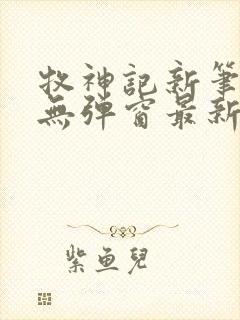 牧神記新筆
無彈窗最新
紫魚兒